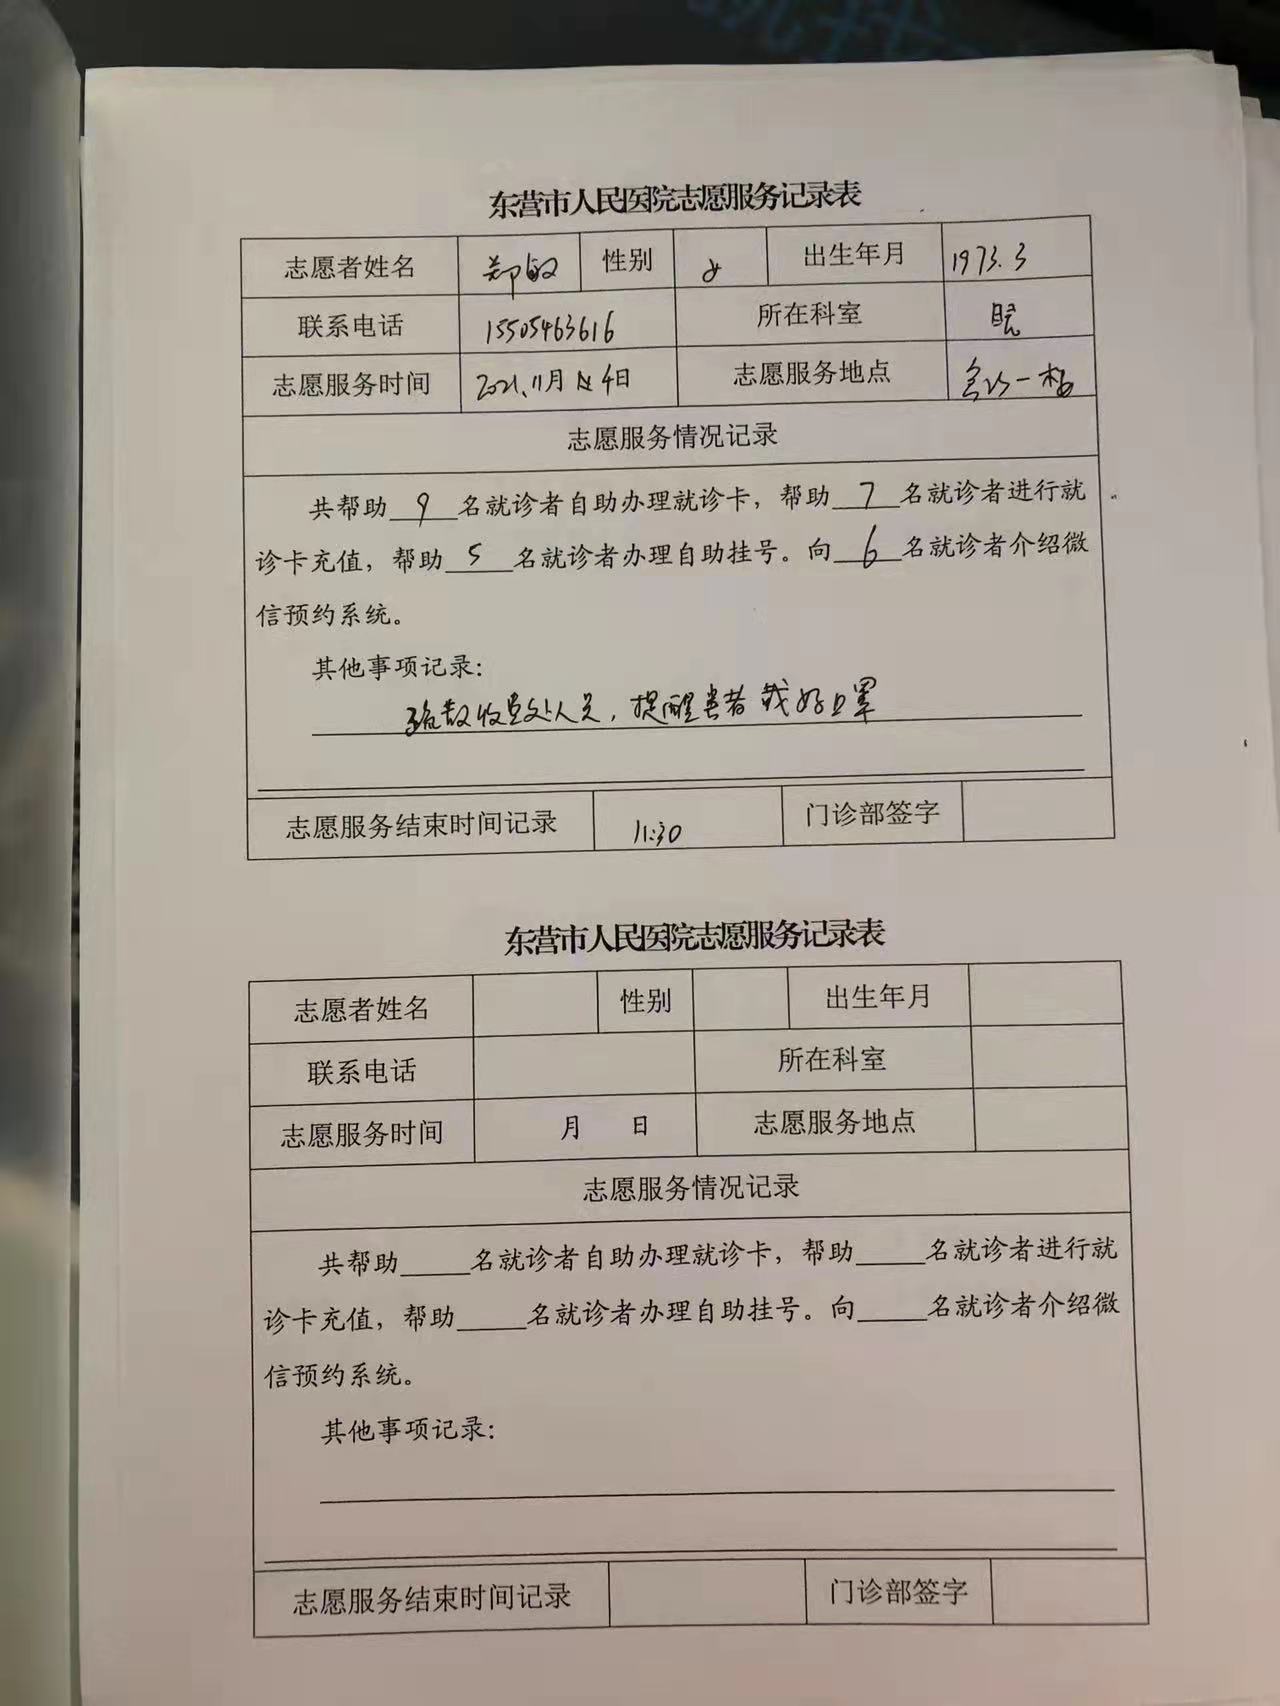 东营市人民医院志愿服务记录表
志愿者姓名 郑敏 性别 女 出生年月 1973.3
联系电话 15505463616 所在科室
志愿服务时间 2021.11月4日 志愿服务地点 一楼
志愿服务情况记录
共帮助 9 名就诊者自助办理就诊卡，帮助 7 名就诊者进行就
诊卡充值，帮助 5 名就诊者办理自助挂号。向 6 名就诊者介绍微
信预约系统。
其他事项记录：
疏散收费处人员，提醒患者戴好口罩
志愿服务结束时间记录 11:30 门诊部签字
东营市人民医院志愿服务记录表
志愿者姓名 性别 出生年月
联系电话 所在科室
志愿服务时间 月 日 志愿服务地点
志愿服务情况记录
共帮助_____名就诊者自助办理就诊卡，帮助_____名就诊者进行就
诊卡充值，帮助_____名就诊者办理自助挂号。向_____名就诊者介绍微
信预约系统。
其他事项记录：
志愿服务结束时间记录 门诊部签字